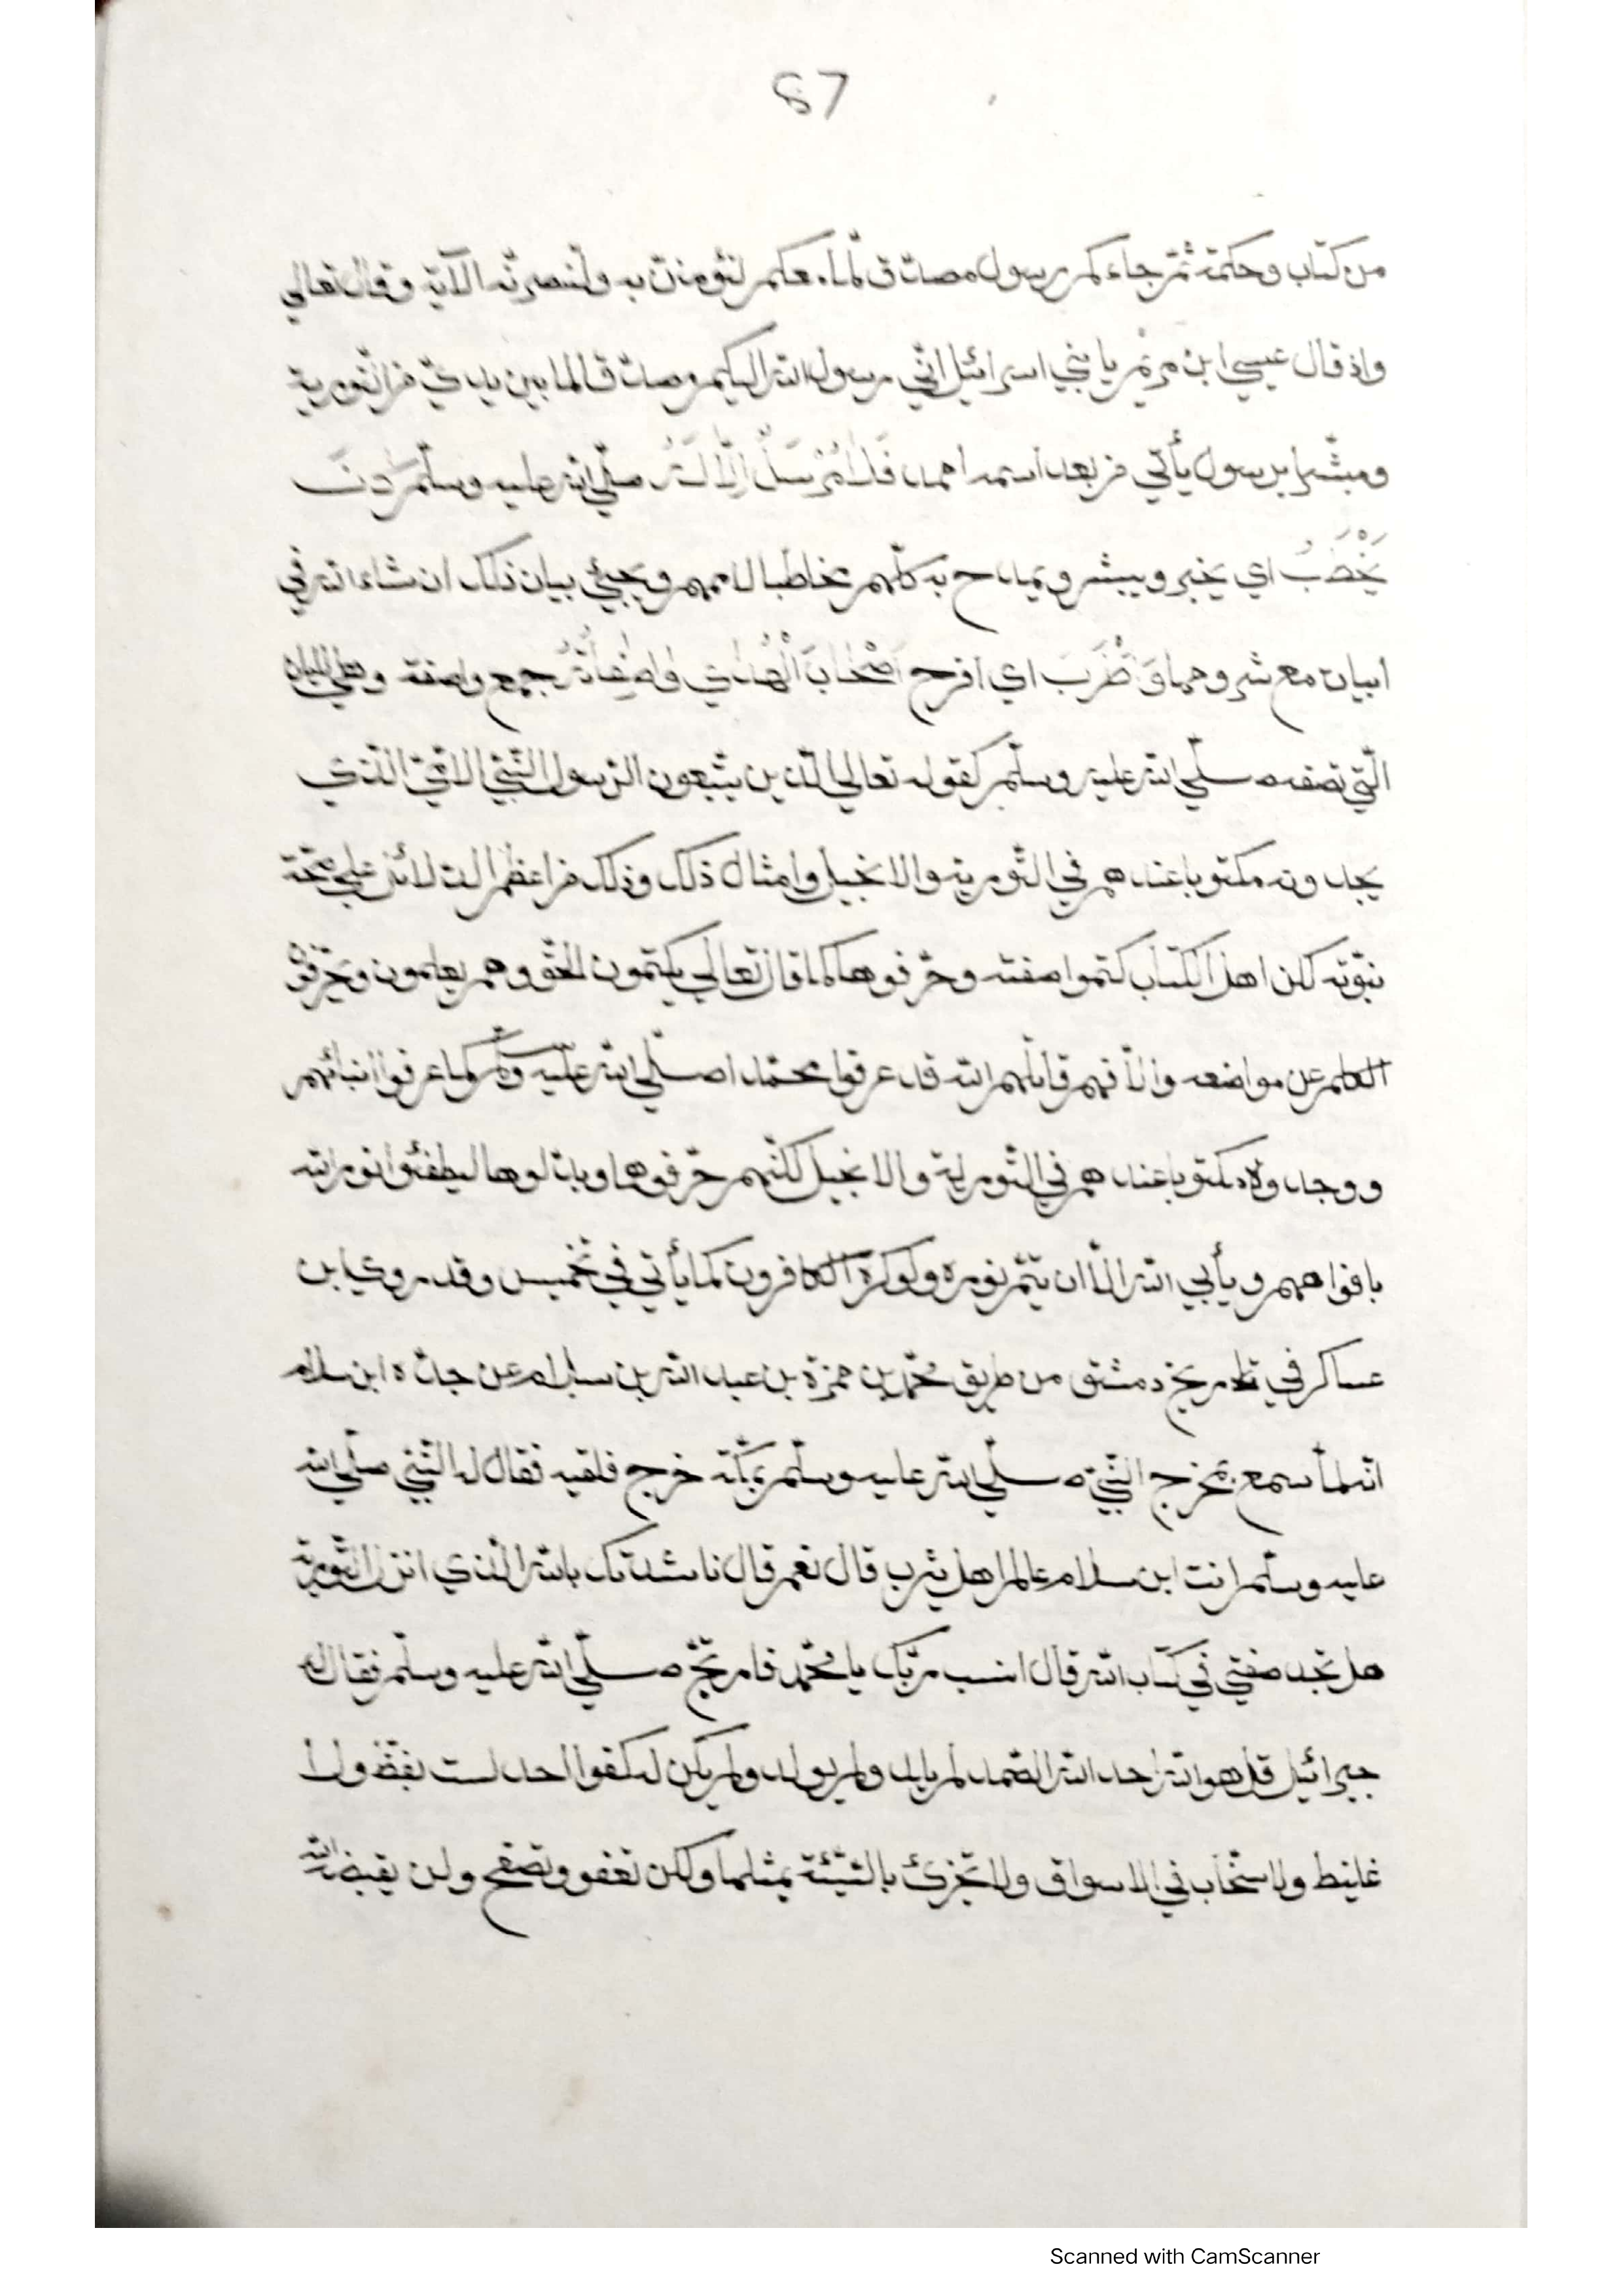 87
من كتاب وحكمة ثمّ جاءكم رسول مصدّق لّما معكم لتؤمننّ به ولتنصرنّه الآية وقال تعالي
واذ قال عيسي ابن مريم يا بني اسرائيل انّي رسول الله اليكم مصدّقا لما بين يديّ من التّورية
ومبشّرا برسول يأتي من بعد اسمه احمد فَلَا مُرْسَلٌ اِلَّا لَهُ صلّي الله عليه وسلّم كَانَ
يَخْطُبُ اي يخبر ويبشر ويمدح به كلّهم مخاطبا لاممهم ويجيئ بيان ذلك ان شاء الله في
ابيات مع شروحها وَاَطْرَبَ اي افرح اَصْحَابَ الْهُدٰي وَاصِفَاتُهُ جمع واصفة وهي
الّتي تصفه صلّي الله عليه وسلّم كقوله تعالي الّذين يتّبعون الرّسول النّبيّ الامّيّ الّذي
يجدونه مكتوبا عندهم في التّورية والانجيل وامثال ذلك وذلك من اعظم الدّلائل علي صحّة
نبوّته لكن اهل الكتاب كتموا صفته وحرّفوها كما قال تعالي يكتمون الحقّ وهم يعلمون ويحرّفون
الكلم عن مواضعه والّا فهم قاتلهم الله قد عرفوا محمّدا صلّي الله عليه وسلّم كما عرفوا ابنائهم
ووجدوه مكتوبا عندهم في التّورية والانجيل لكنّهم حرّفوها وبدّلوها ليطفئوا نور الله
بافواههم ويأبي الله الّا ان يتمّ نوره ولو كره الكافرون كما يأتي في تخميس وقد روي ابن
عساكر في تاريخ دمشق من طريق محمّد بن حمزة بن عبد الله بن سلام عن جدّه ابن سلام
انّه لمّا سمع بمخرج النّبيّ صلّي الله عليه وسلّم بمكّة خرج فلقيه فقال له النّبيّ صلّي الله
عليه وسلّم انت ابن سلام عالم اهل يثرب قال نعم قال ناشدتك بالله الّذي انزل التّورية
هل تجد صفتي في كتاب الله قال انسب ربّك يا محمّد فارتجّ صلّي الله عليه وسلّم فقال له
جبرائيل قل هو الله احد الله الصّمد لم يلد ولم يولد ولم يكن له كفوا احد لست بفظّ ولا
غليظ ولا سخّاب في الاسواق ولا تجزئ بالسّيّئة بمثلها ولكن تعفو وتصفح ولن يقبضه الله
Scanned with CamScanner